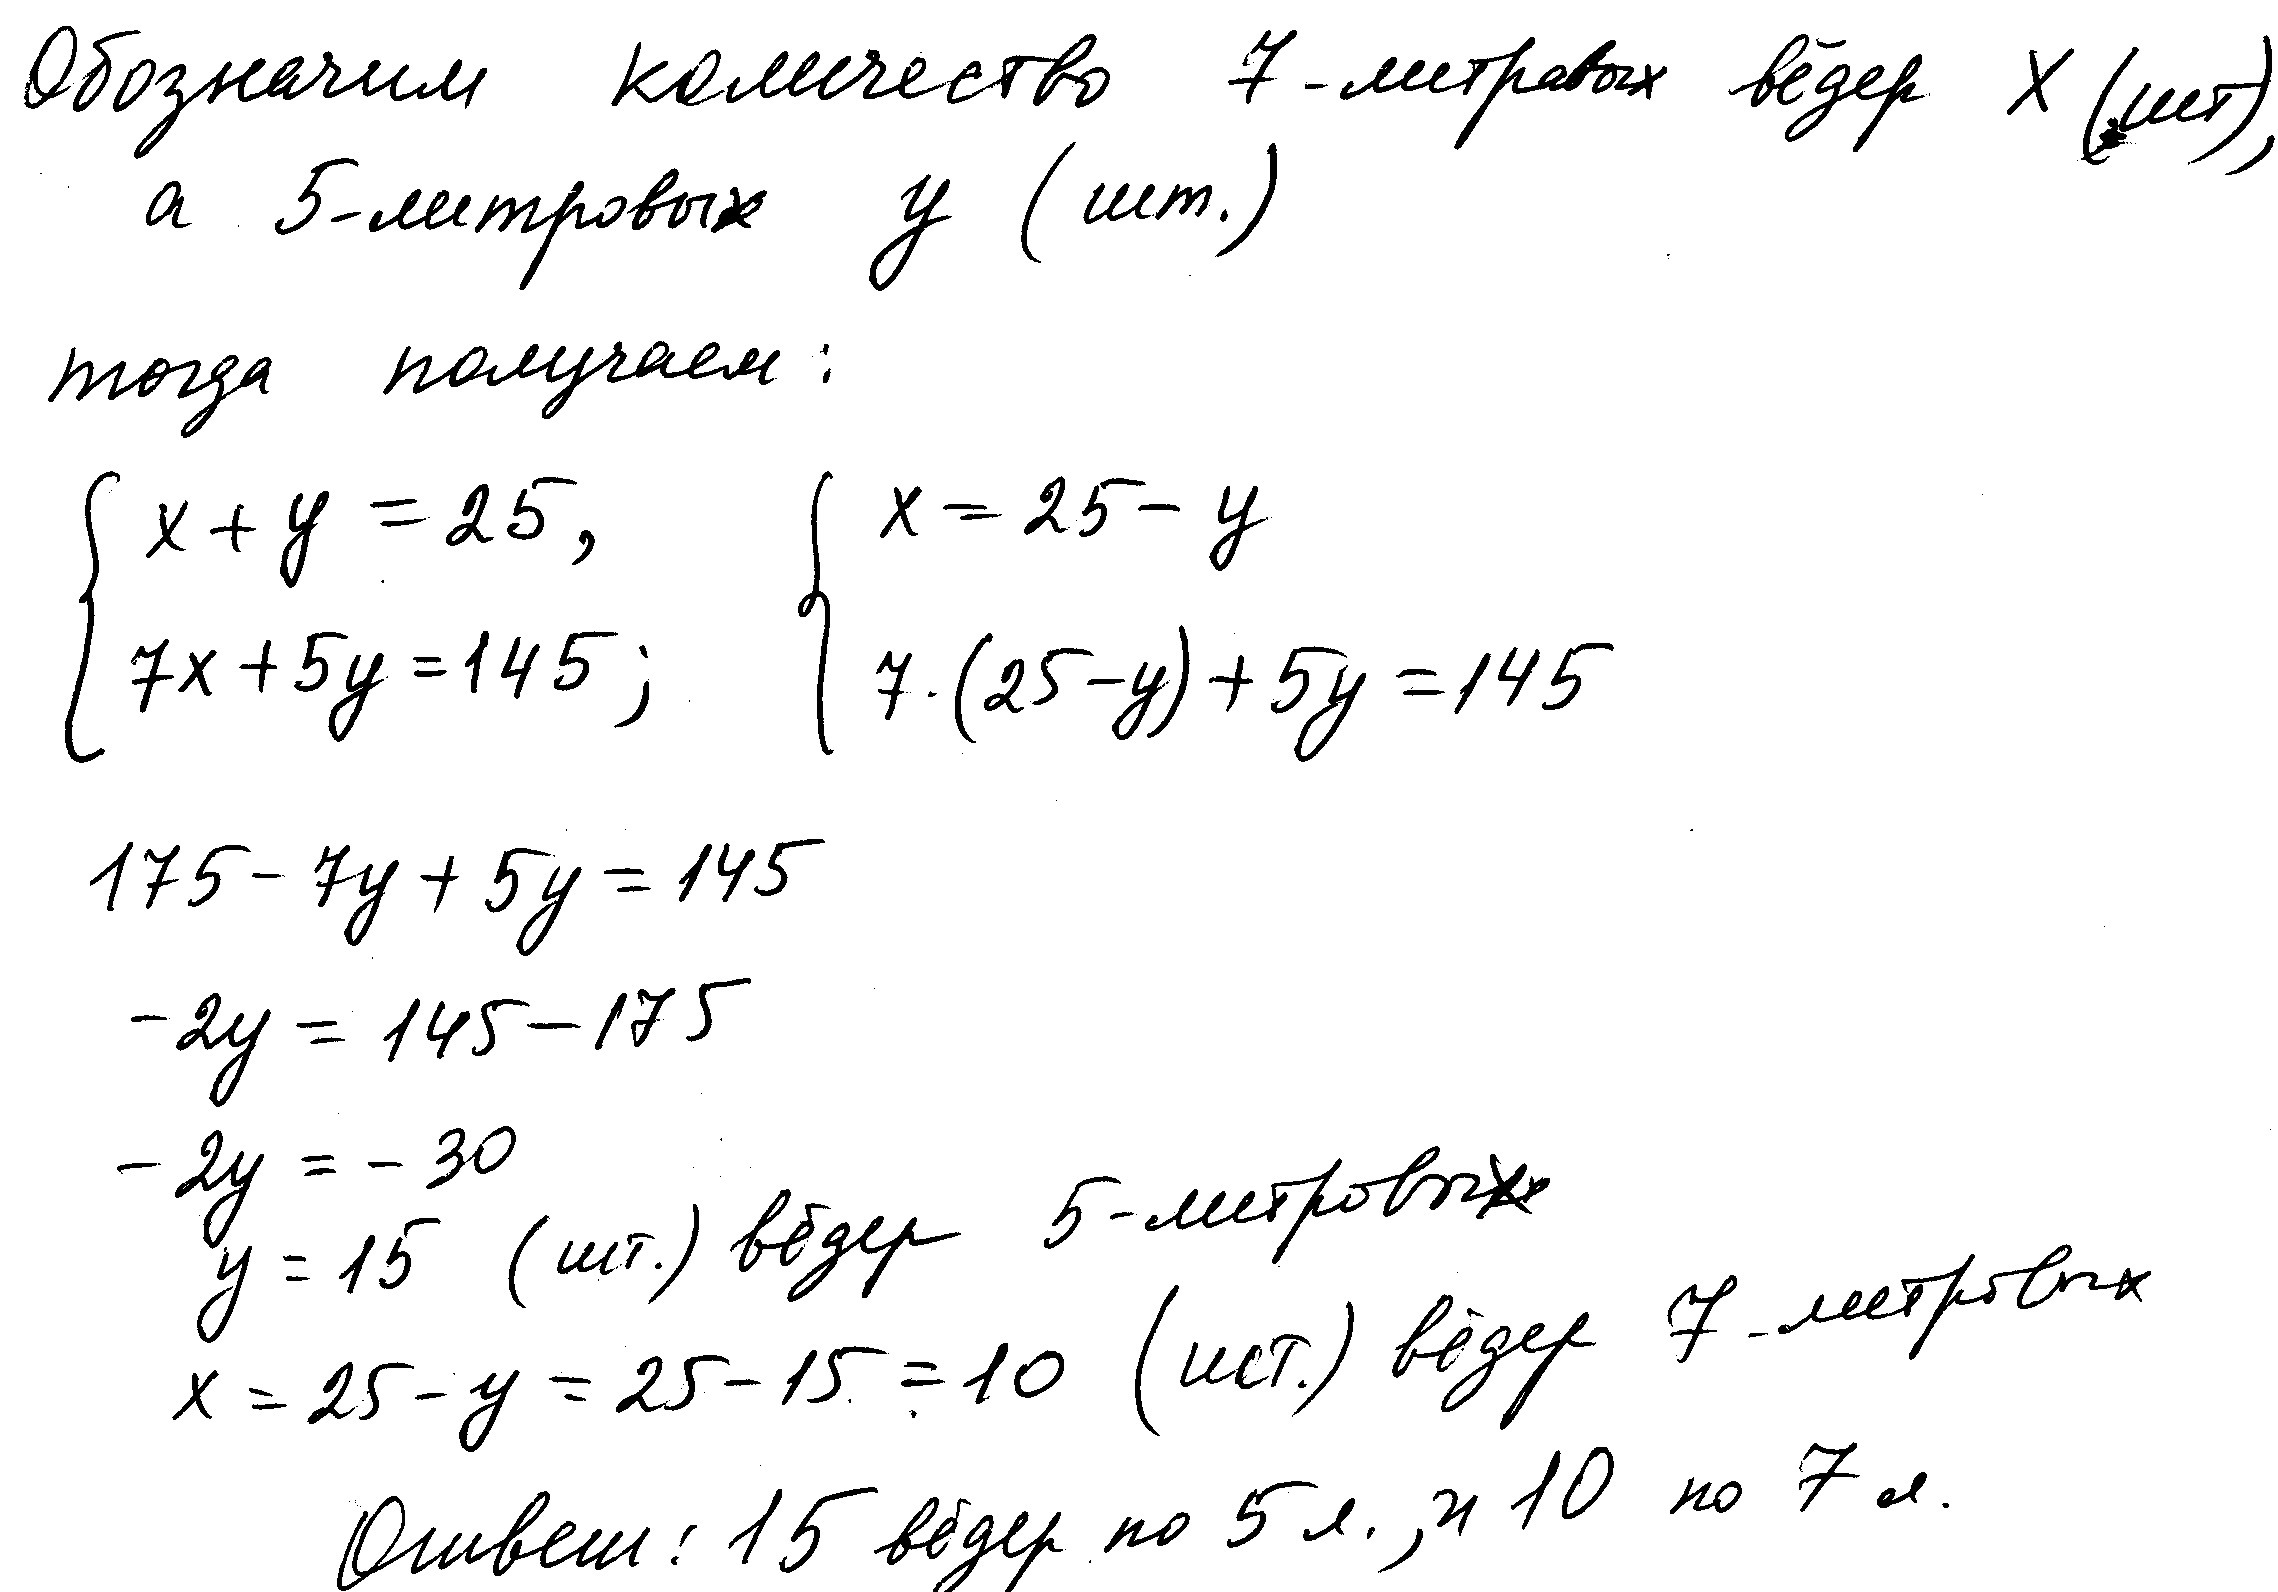 Обозначим количество 7-литравых вёдер x (шт),
а 5-литровых y (шт.)
тогда получаем:
{ x + y = 25, { x = 25 - y
7x + 5y = 145; 7·(25 - y) + 5y = 145
175 - 7y + 5y = 145
-2y = 145 - 175
-2y = -30
y = 15 (шт.) вёдер 5-литровых
x = 25 - y = 25 - 15 = 10 (шт.) вёдер 7-литровых
Ответ: 15 вёдер по 5 л., и 10 по 7 л.